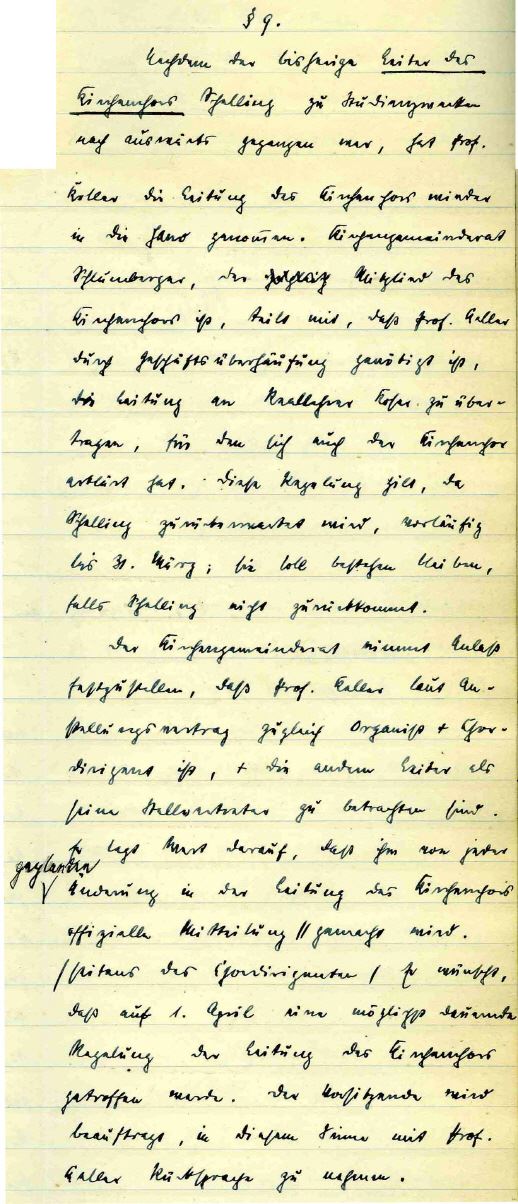 § 9.
Nachdem der bisherige Leiter des
Kirchenchors Schelling zu Studienzwecken
nach auswärts gegangen war, hat Prof.
Keller die Leitung des Kirchenchors wieder
in die Hand genommen. Kirchengemeinderat
Schlumberger, der Mitglied des
Kirchenchors ist, teilt mit, daß Prof. Keller
durch Geschäftsüberhäufung genötigt ist,
die Leitung an Reallehrer zu über-
tragen, für den sich auch der Kirchenchor
erklärt hat. Diese Regelung gilt, da
Schelling zurückerwartet wird, vorläufig
bis 31. März; sie soll bestehen bleiben,
falls Schelling nicht zurückkommt.
Der Kirchengemeinderat nimmt Anlaß
festzustellen, daß Prof. Keller laut An-
stellungsvertrag zugleich Organist + Chor-
dirigent ist, + die andern Leiter als
seine Stellvertreter zu betrachten sind.
Er legt Wert darauf, daß ihm von jeder
geplanten
Änderung in der Leitung des Kirchenchors
offizielle Mitteilung // gemacht wird.
/seitens des Chordirigenten / Er wünscht,
daß auf 1. April eine möglichst dauernde
Regelung der Leitung des Kirchenchors
getroffen werde. Der Vorsitzende wird
beauftragt, in diesem Sinne mit Prof.
Keller Rücksprache zu nehmen.